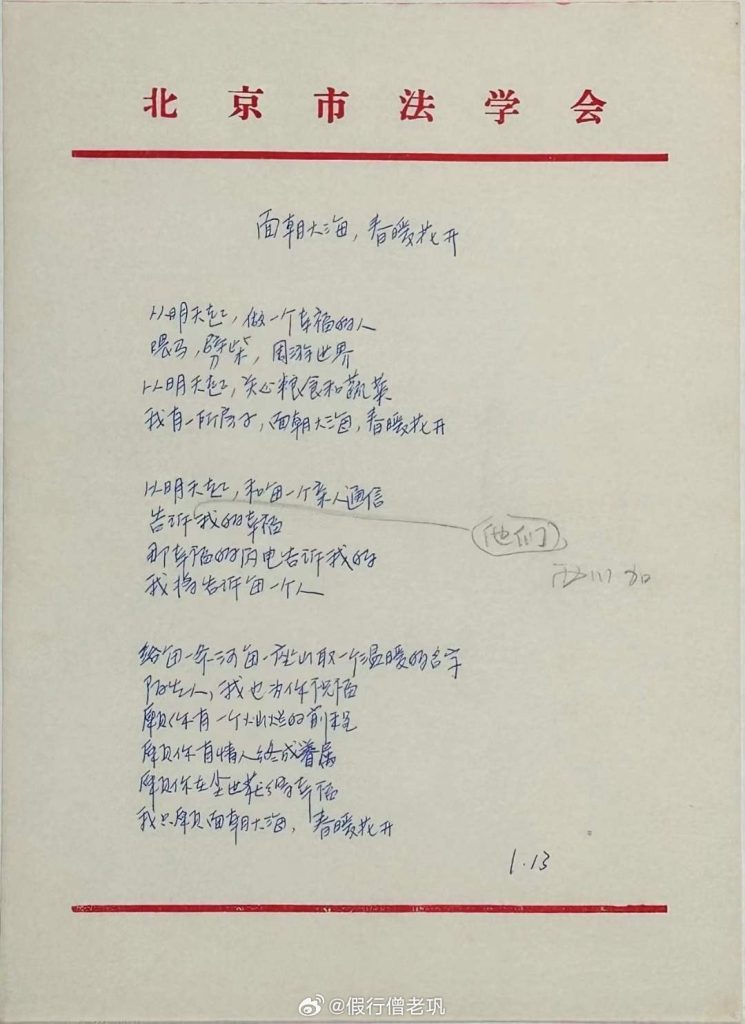 北京市法学会
面朝大海，春暖花开
从明天起，做一个幸福的人
喂马，劈柴，周游世界
从明天起，关心粮食和蔬菜
我有一所房子，面朝大海，春暖花开
从明天起，和每一个亲人通信
告诉我的幸福
他们
那幸福的闪电告诉我的
我将告诉每一个人
西川加
给每一条河每一座山取一个温暖的名字
陌生人，我也为你祝福
愿你有一个灿烂的前程
愿你有情人终成眷属
愿你在尘世获得幸福
我只愿面朝大海，春暖花开
1.13
@假行僧老巩